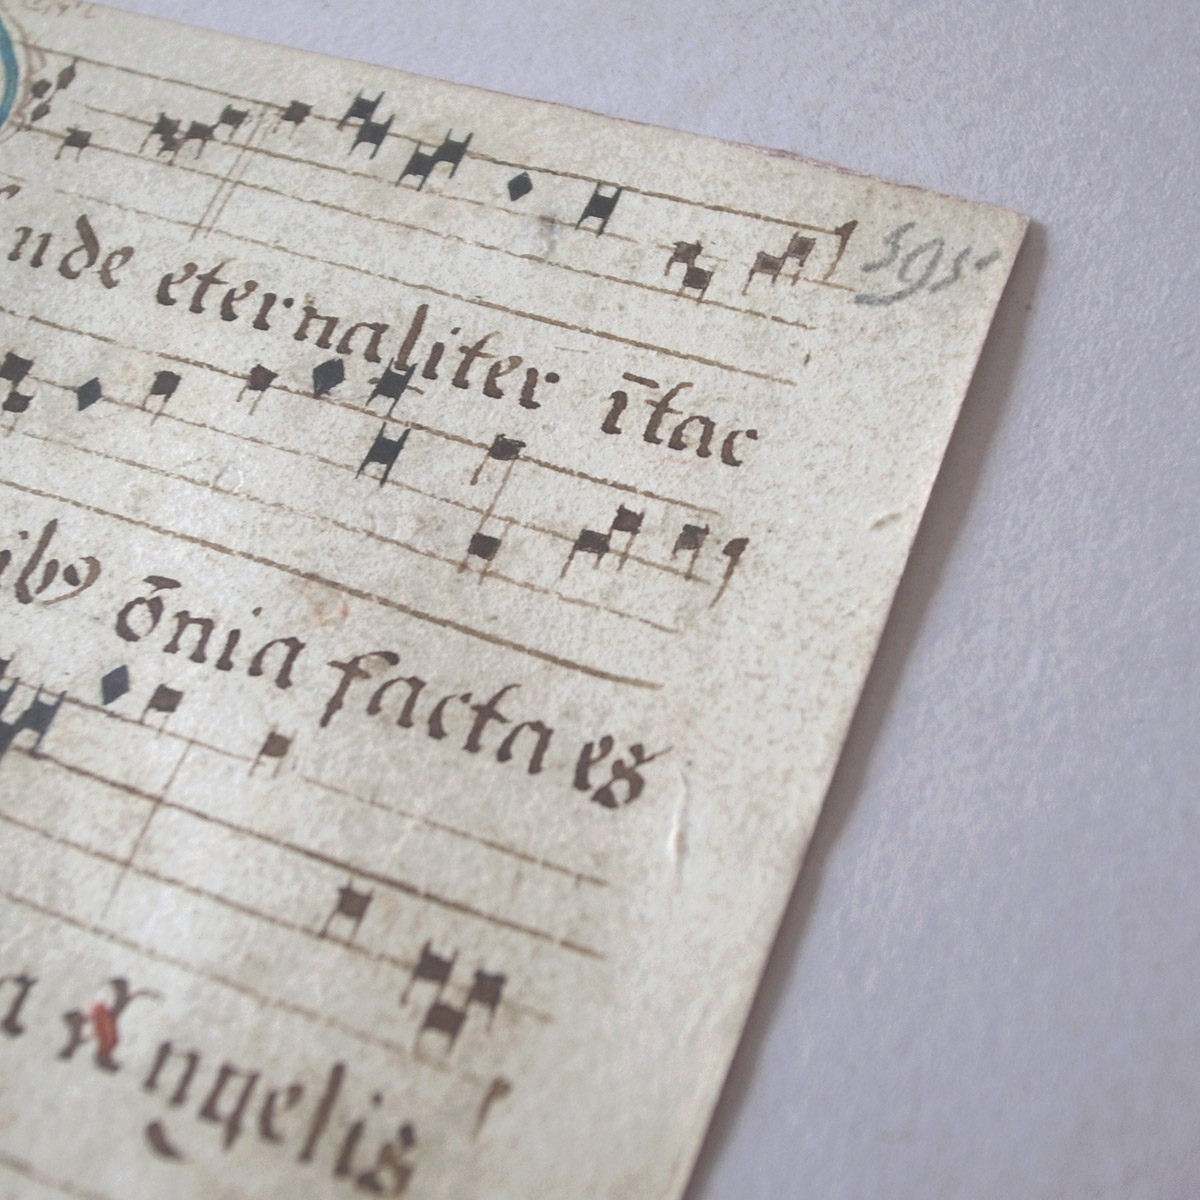 595.
nde eternaliter ītac
ibꝰ ōnia facta es
a Angelis